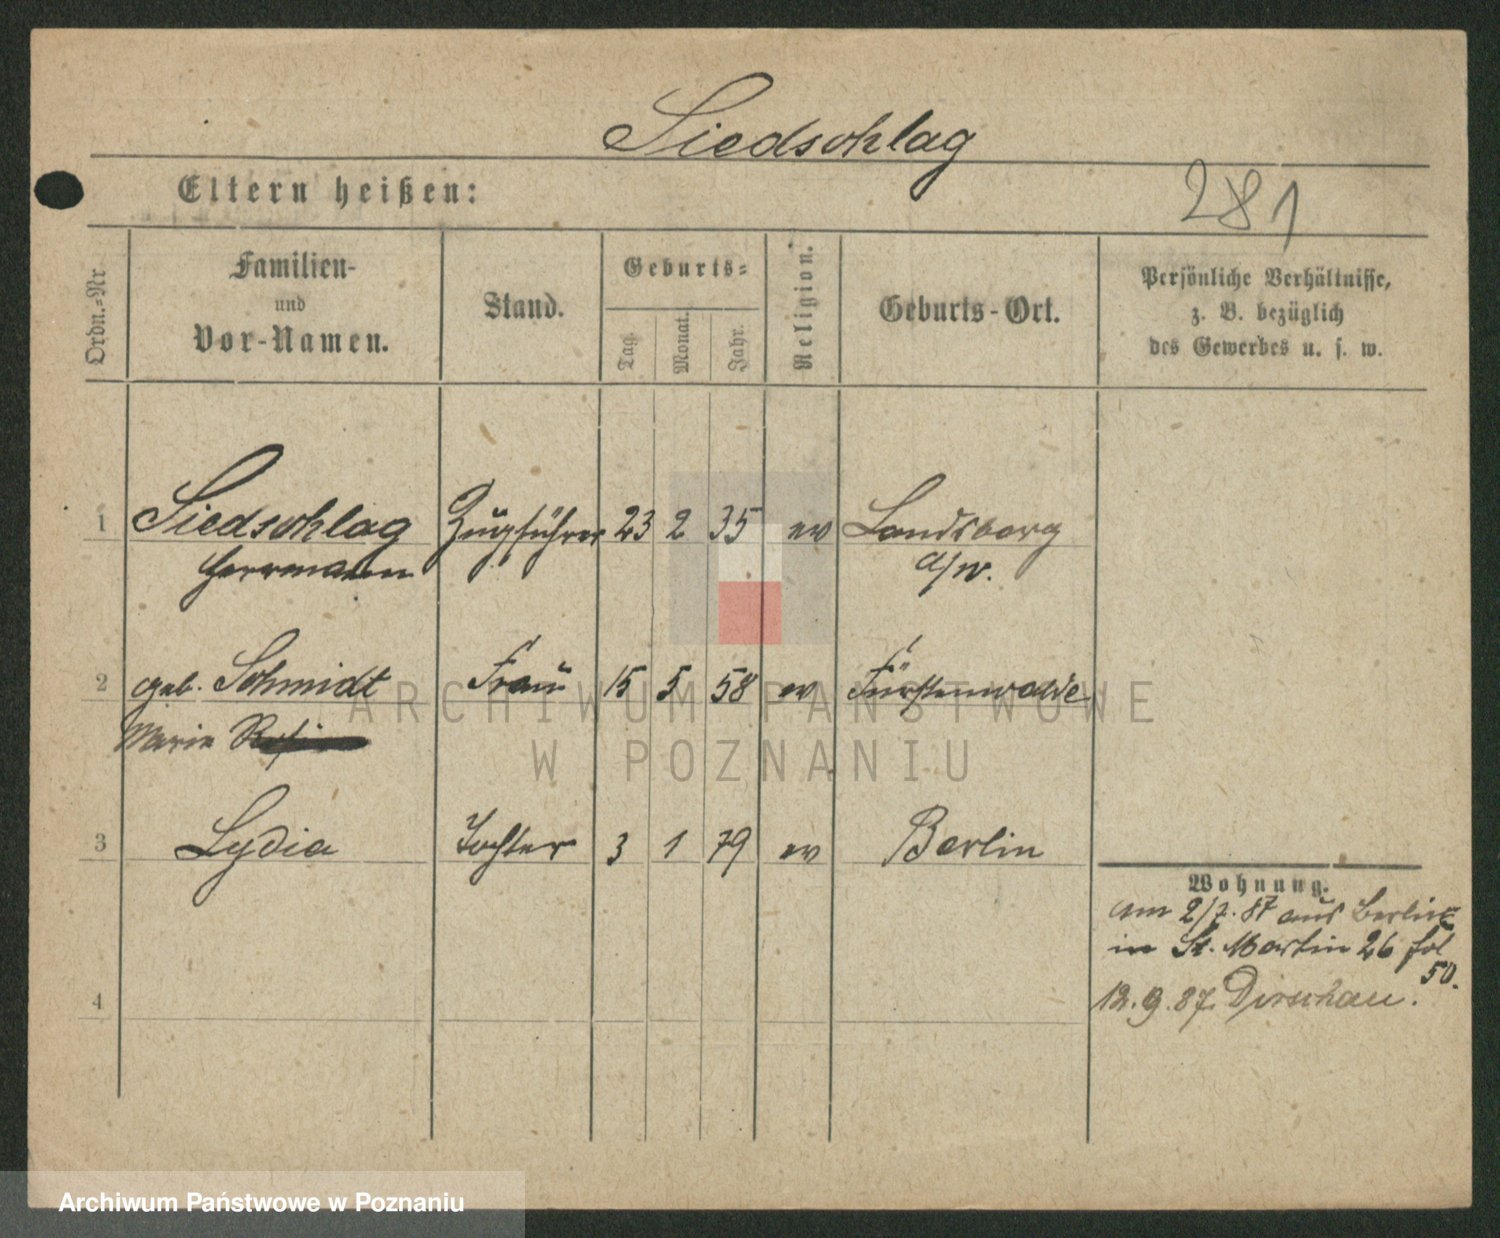 Siedschlag
Eltern heißen:
281
Ordn.-Nr
Familien-
und
Vor-Namen.
Stand.
Geburts-
Tag.
Monat.
Jahr.
Religion.
Geburts-Ort.
Persönliche Verhältnisse,
z. B. bezüglich
des Gewerbes u. s. w.
1 Siedschlag Zugführer 23 2 35 ev Landsberg
Herrmann a/W.
2 geb. Schmidt Frau 15 5 58 ev Fürstenwalde
Marie
3 Lydia Tochter 3 1 79 ev Berlin
Wohnung.
am 2/7. 87 aus Berlin
in St. Martin 26 fol
50.
12.9.87. Dirschau.
4
ARCHIWUM PAŃSTWOWE
W POZNANIU
Archiwum Państwowe w Poznaniu